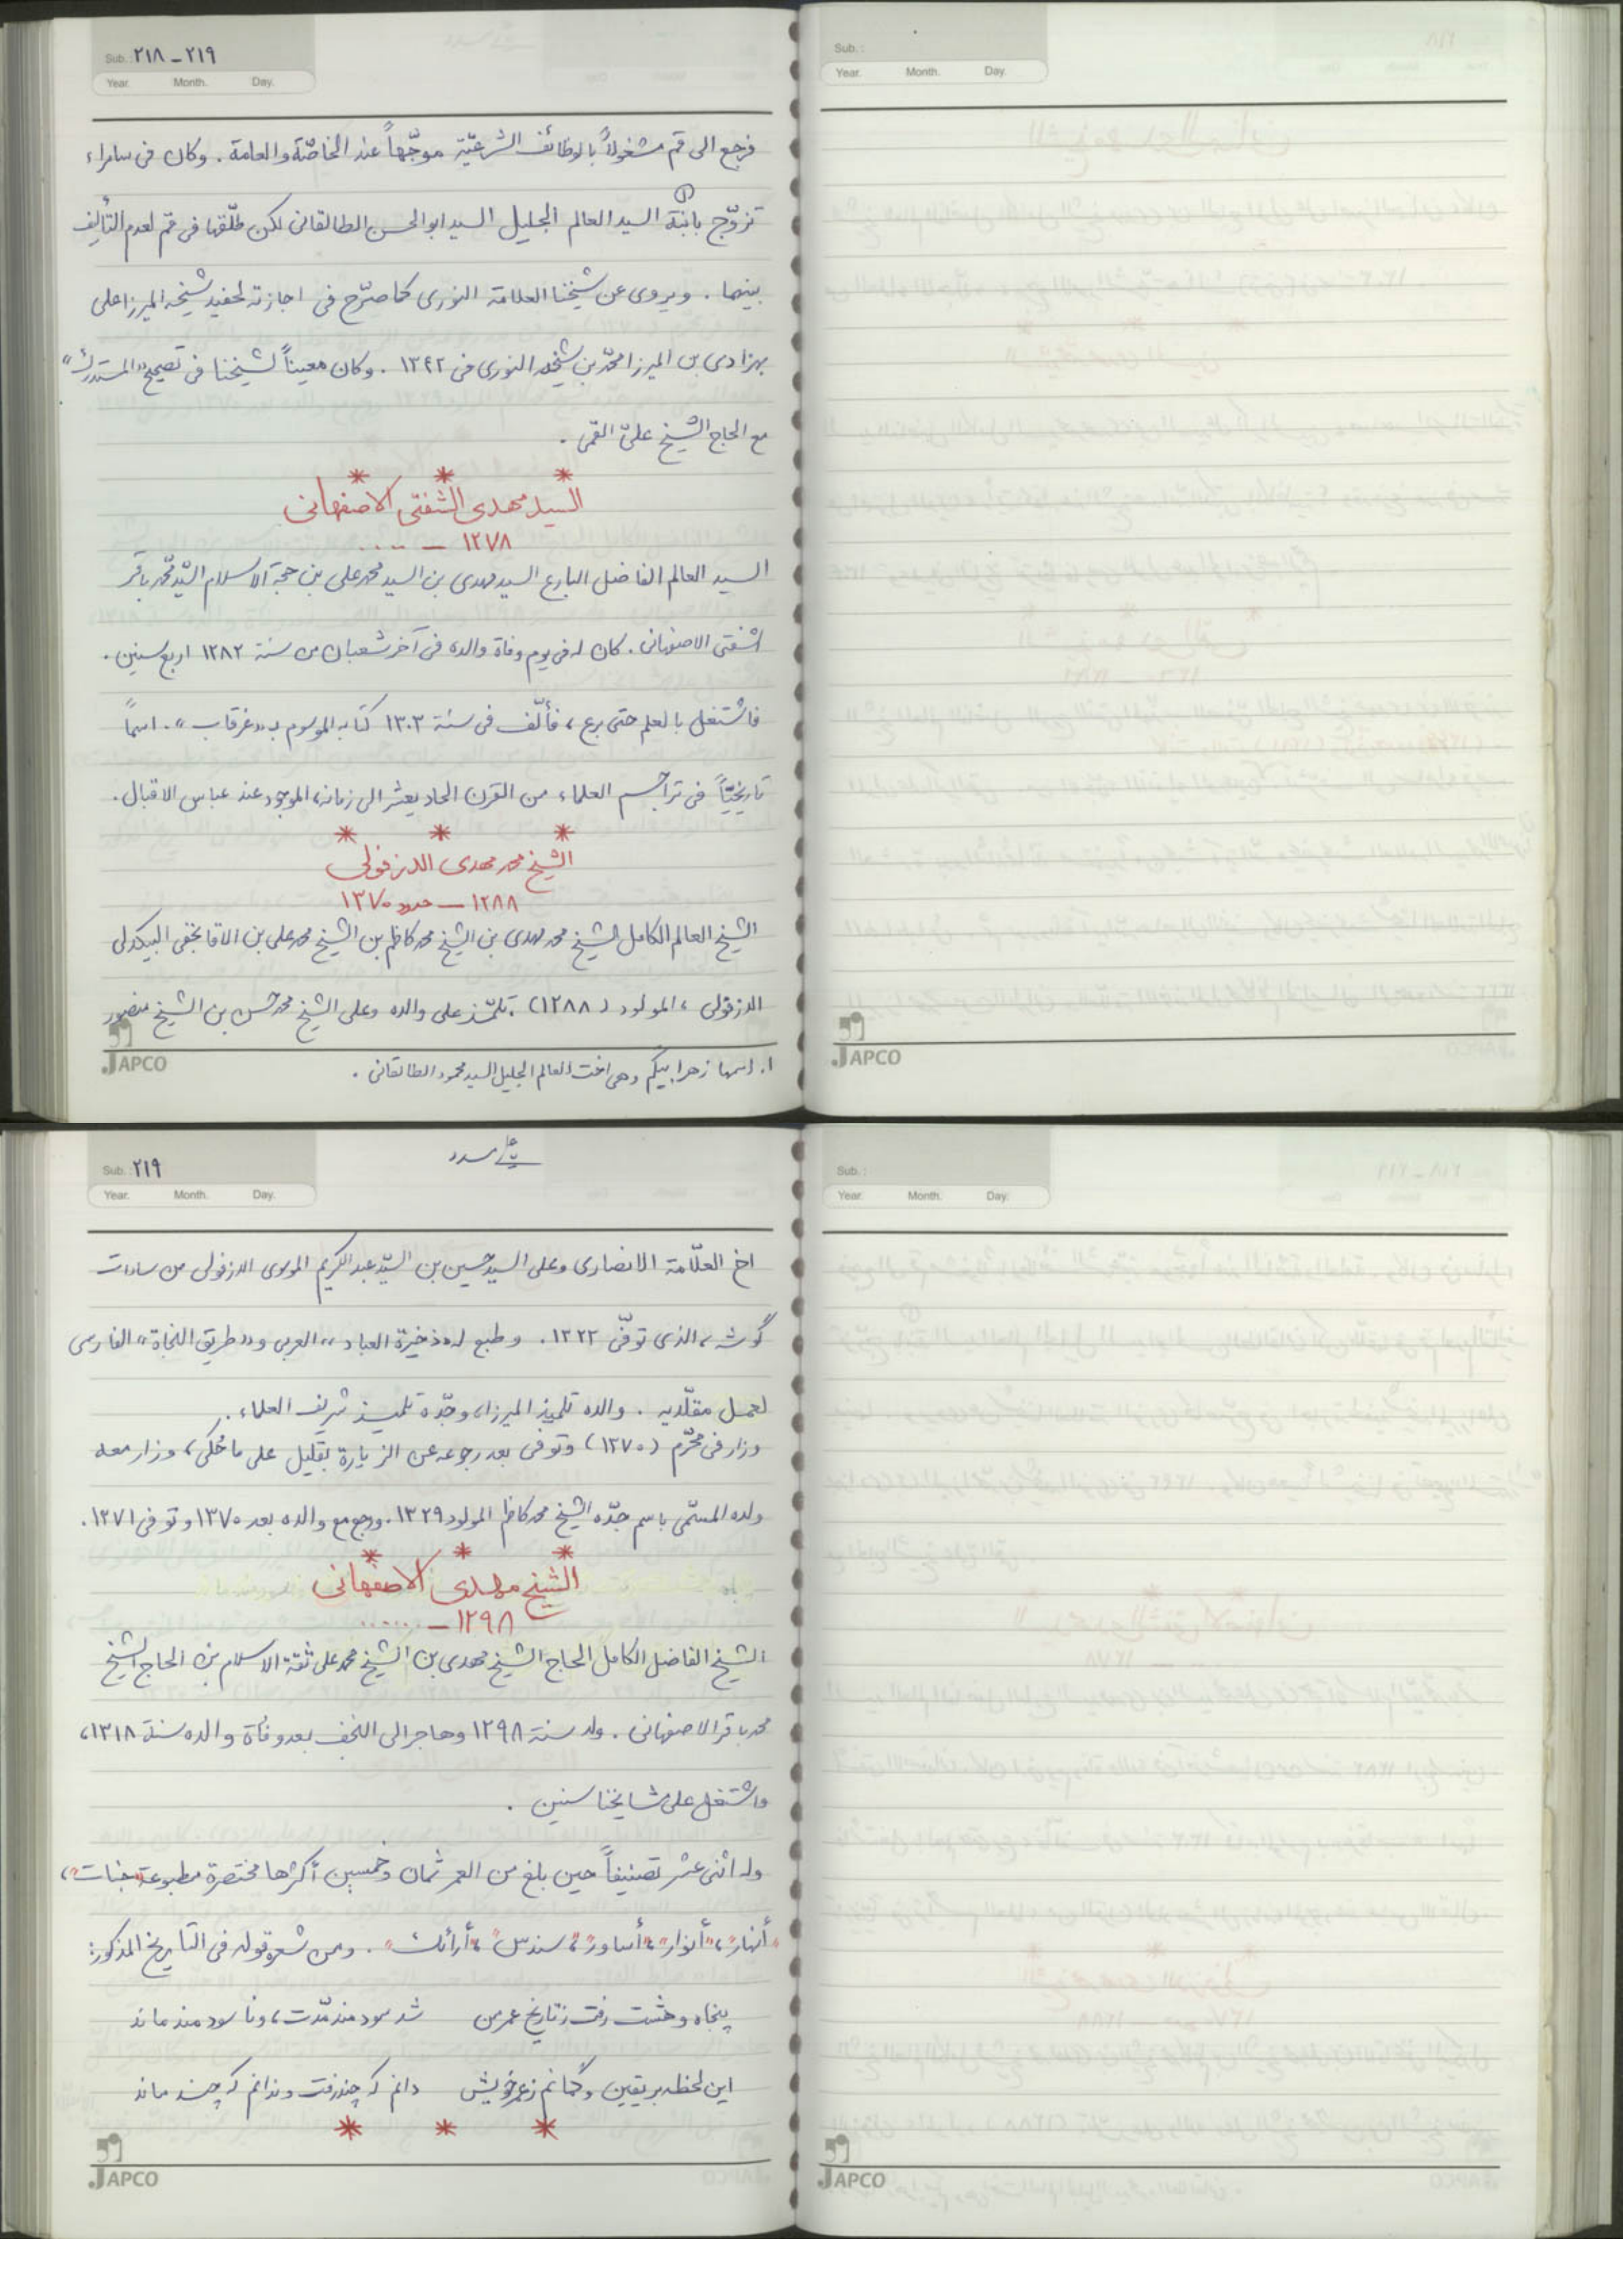 Sub.: ٢١٨ - ٢١٩
Year. Month. Day.
فرجع الى قم مشغولاً بالوظائف الشرعيّة موجّهاً عند الخاصّة والعامة . وكان فى سامراء
تزوّج بابنة (١) السيّد العالم الجليل السيد ابوالحسن الطالقانى لكن طلّقها فى قم لعدم التأليف
بينهما . ويروى عن شيخنا العلامة النورى كما صرّح فى اجازته لحفيد شيخه الميرزا على
بهزادى بن الميرزا محمّد بن شيخه النورى فى ١٣٤٢ . وكان معيناً لشيخنا فى تصحيح "المستدرك"
مع الحاج الشيخ علىّ القمى .
* * *
السيد مهدى الشفتى الاصفهانى
١٢٧٨ — .....
السيد العالم الفاضل البارع السيد مهدى بن السيد محمد على بن حجة الاسلام السيّد محمّد باقر
الشفتى الاصفهانى . كان له فى يوم وفاة والده فى آخر شعبان من سنة ١٢٨٢ اربع سنين .
فاشتغل بالعلم حتى برع ، فألّف فى سنة ١٣٠٣ كتابه الموسوم بـ "غرقاب" . اسماً
تاريخيّاً فى تراجم العلماء من القرن الحاديعشر الى زمانه، الموجود عند عباس الاقبال .
* * *
الشيخ محمد مهدى الدزفولى
١٢٨٨ — حدود ١٣٧٠
الشيخ العالم الكامل الشيخ محمد مهدى بن الشيخ محمد كاظم بن الشيخ محمد على بن الاقا نجفى البيكدلى
الدزفولى ، المولود (١٢٨٨) . تلمّذ على والده وعلى الشيخ محمد حسن بن الشيخ منصور
١. اسمها زهرا بيگم وهى اخت العالم الجليل السيد محمود الطالقانى .
JAPCO
Sub.:
Year. Month. Day.
JAPCO
Sub.: ٢١٩
Year. Month. Day.
اخ العلّامة الانصارى وعلى السيد حسين بن السيّد عبد الكريم الموسوى الدزفولى من سادات
گوشه ، الذى توفّى ١٣٢٢ . وطبع له "ذخيرة العباد" ، العربى و "طريق النجاة" الفارسى
لعمل مقلّديه . والده تلميذ الميرزا ، وجدّه تلميذ شريف العلماء .
وزار فى محرّم (١٣٧٠) وتوفى بعد رجوعه عن الزيارة بقليل على ما حُكى ، وزار معه
ولده المسمّى باسم جدّه الشيخ محمد كاظم المولود ١٣٢٩ . ورجع مع والده بعد ١٣٧٠ وتوفى ١٣٧١ .
* * *
الشيخ مهدى الاصفهانى
١٢٩٨ — ......
الشيخ الفاضل الكامل الحاج الشيخ مهدى بن الشيخ محمد على ثقة الاسلام بن الحاج الشيخ
محمد باقر الاصفهانى . ولد سنة ١٢٩٨ وهاجر الى النجف بعد وفاة والده سنة ١٣١٨ ،
واشتغل على مشايخنا سنين .
وله اثنى عشر تصنيفاً حين بلغ من العمر ثمان وخمسين أكثرها مختصرة مطبوعة "جنات" ،
"أنهار" ، "أنوار" ، "أساور" ، "سندس" ، "أرائك" . ومن شعره قوله فى التاريخ المذكور :
پنجاه وهشت رفت زتاريخ عمر من شد سود مند مدّت ، وناسود مند ماند
اين لحظه بر يقين وگمانم زعمر خويش دانم كه چند رفت وندانم كه چند ماند
* * *
JAPCO
Sub.:
Year. Month. Day.
JAPCO